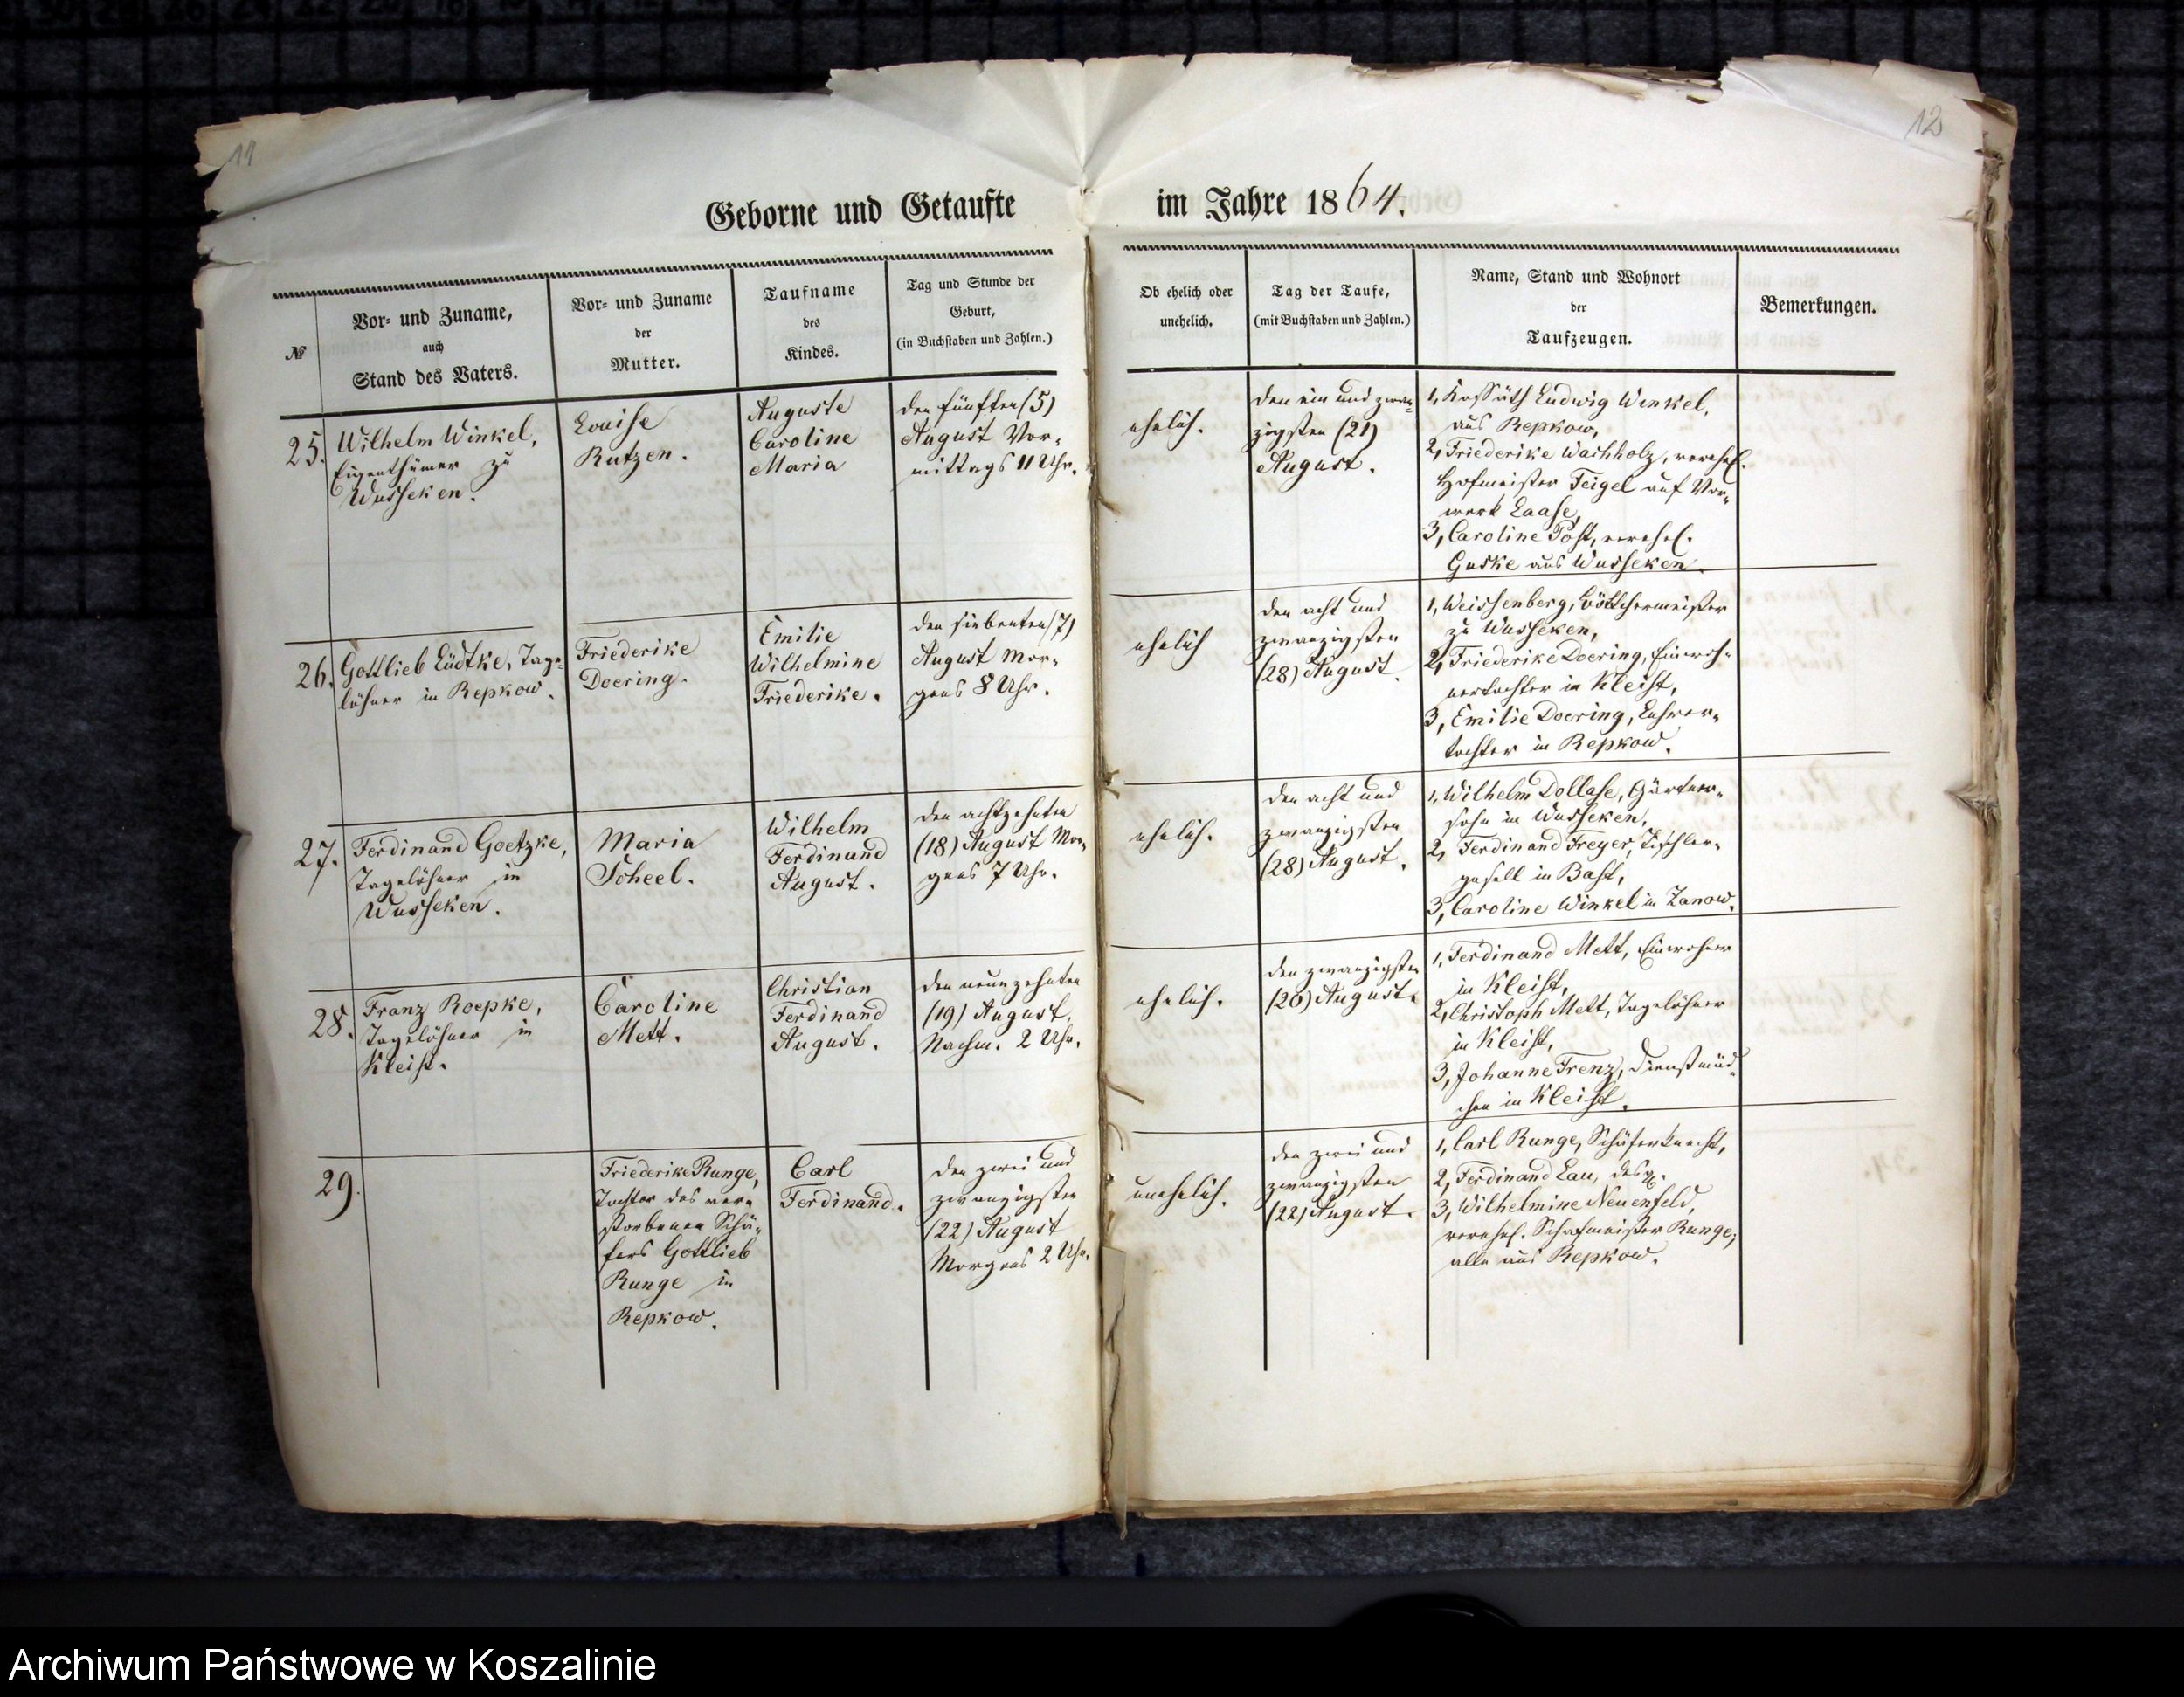 11
12
Geborne und Getaufte im Jahre 1864.
№
Vor- und Zuname,
auch
Stand des Vaters.
Vor- und Zuname
der
Mutter.
Taufname
des
Kindes.
Tag und Stunde der
Geburt,
(in Buchstaben und Zahlen.)
Ob ehelich oder
unehelich.
Tag der Taufe,
(mit Buchstaben und Zahlen.)
Name, Stand und Wohnort
der
Taufzeugen.
Bemerkungen.
25.
Wilhelm Winkel,
Eigenthümer zu
Wusseken.
Louise
Rutzen.
Auguste
Caroline
Maria
den fünften (5)
August Vor-
mittags 11 Uhr.
ehelich.
den ein und zwan-
zigsten (21)
August.
1, Kossäth Ludwig Winkel,
aus Repkow,
2, Friederike Wachholz, verehel.
Hofmeister Feigel auf Vor-
werk Laase,
3, Caroline Post, verehel.
Guske aus Wusseken.
26.
Gottlieb Lüdtke, Tage-
löhner in Repkow.
Friederike
Doering.
Emilie
Wilhelmine
Friederike.
den siebenten (7)
August Mor-
gens 8 Uhr.
ehelich
den acht und
zwanzigsten
(28) August.
1, Weissenberg, Böttchermeister
zu Wusseken,
2, Friederike Doering, Einwoh-
nertochter in Kleist,
3, Emilie Doering, Lehrer-
tochter in Repkow.
27.
Ferdinand Goetzke,
Tagelöhner in
Wusseken.
Maria
Scheel.
Wilhelm
Ferdinand
August.
den achtzehnten
(18) August Mor-
gens 7 Uhr.
ehelich.
den acht und
zwanzigsten
(28) August.
1, Wilhelm Dollase, Gärtner-
sohn in Wusseken,
2, Ferdinand Freyer, Tischler-
gesell in Bast,
3, Caroline Winkel in Zanow.
28.
Franz Roepke,
Tagelöhner in
Kleist.
Caroline
Mett.
Christian
Ferdinand
August.
den neunzehnten
(19) August,
Nachm. 2 Uhr.
ehelich.
den zwanzigsten
(20) August.
1, Ferdinand Mett, Einwohner
in Kleist,
2, Christoph Mett, Tagelöhner
in Kleist,
3, Johanne Frenz, Dienstmäd-
chen in Kleist.
29.
Friederike Runge,
Tochter des ver-
storbenen Schä-
fers Gottlieb
Runge in
Repkow.
Carl
Ferdinand.
den zwei und
zwanzigsten
(22) August
Morgens 2 Uhr.
unehelich.
den zwei und
zwanzigsten
(22) August.
1, Carl Runge, Schäferknecht,
2, Ferdinand Lau,
3, Wilhelmine Neuenfeld,
verehel. Schafmeister Runge;
alle aus Repkow.
Archiwum Państwowe w Koszalinie